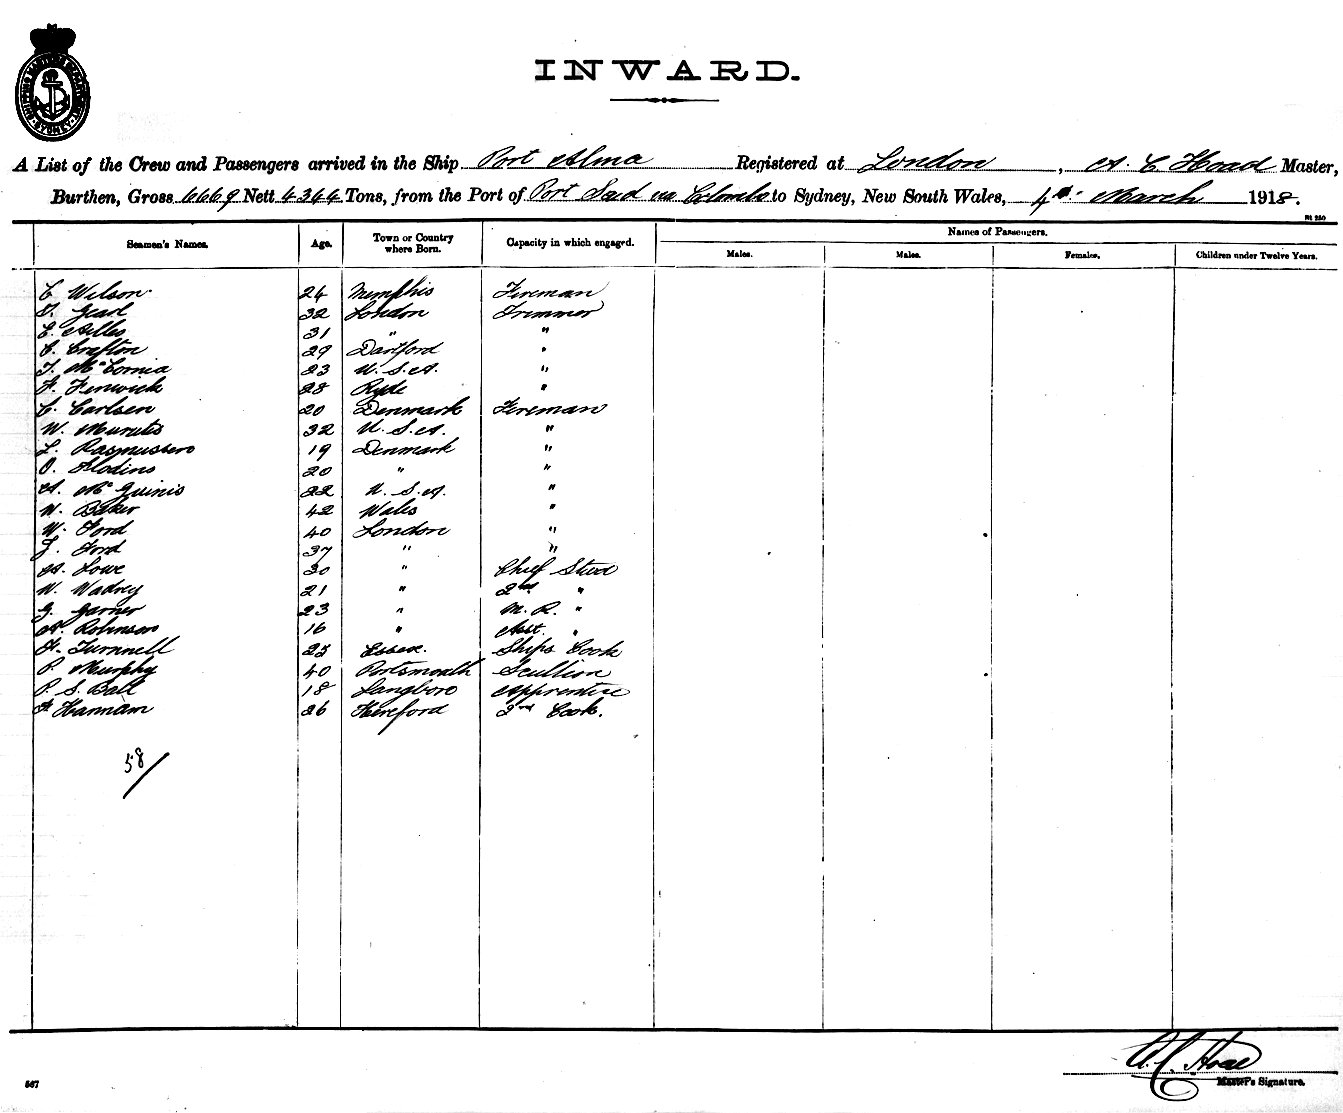 INWARD.
A List of the Crew and Passengers arrived in the Ship Port Alma Registered at London, A. C Hoad Master,
Burthen, Gross 6669 Nett 4364 Tons, from the Port of Port Said via Colombo to Sydney, New South Wales, March 1918.
Names of Passengers.
Seamen's Names. Age. Town or Country where Born. Capacity in which engaged. Males. Males. Females. Children under Twelve Years.
C Wilson 24 Memphis Fireman
32 London Trimmer
E. 31 " "
C. Crafton 29 Dartford "
T. McCornia 23 U.S.A. "
F. Fenwick 28 Ryde "
C. Carlsen 20 Denmark Fireman
W. 32 U.S.A. "
L. Rasmussen 19 Denmark "
O. Flodins 20 " "
A. McGuinis 22 U.S.A. "
W. Baker 42 Wales "
W. Ford 40 London "
J. Ford 37 " "
A. Lowe 30 " Chief Stwd
W. Wadney 21 " 2nd "
G. Garner 23 " M. R. "
A. Robinson 16 " Asst. "
F. Turnnell 25 Essex. Ships Cook
P. Murphy 40 Portsmouth Scullion
P. S. Ball 18 Langboro Apprentice
F Hannam 26 Hereford 2nd Cook.
58/
A. C. Hoad
Master's Signature.
567